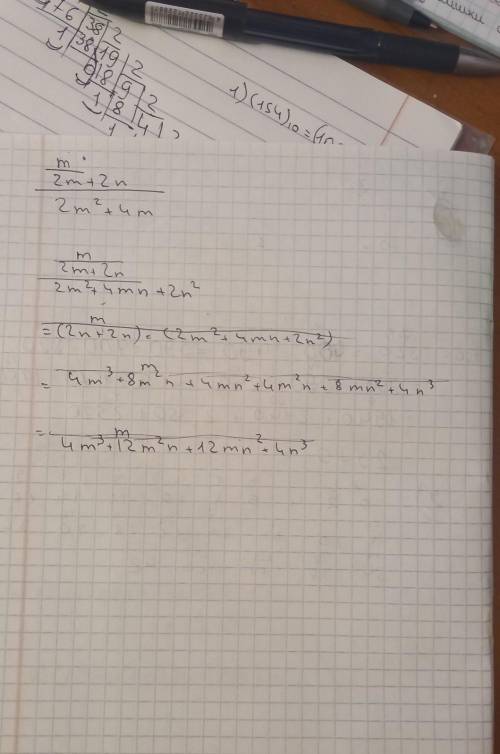 76 38 2
1 38 19 2
0 18 9 2
1 8 4
1
1) (154)₁₀ = (10
m
2m + 2n
2m² + 4m
m
2m + 2n
2m² + 4mn + 2n²
m
= (2n + 2n) · (2m² + 4mn + 2n²)
m
= 4m³ + 8m²n + 4mn² + 4m²n + 8mn² + 4n³
m
= 4m³ + 12m²n + 12mn² + 4n³